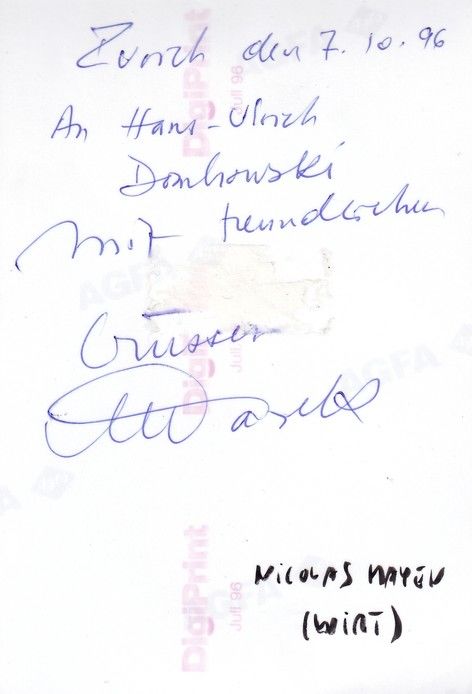 Zürich den 7.10.96
An Hans-Ulrich
Domkowski
Mit freundlichen
Grüssen
NICOLAS
(WIRT)
DigiPrint
Juli 96
AGFA
DigiPrint
Juli 96
AGFA
AGFA
DigiPrint
Juli 96